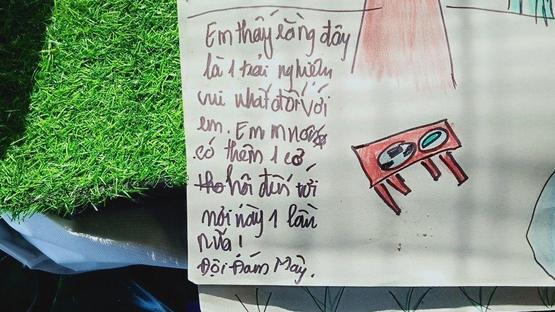 Em thấy rằng đây
là 1 trải nghiệm
vui nhất đối với
em. Em mong
có thêm 1 cơ
hội đến với
nơi này 1 lần
nữa!
Đội Đám Mây.